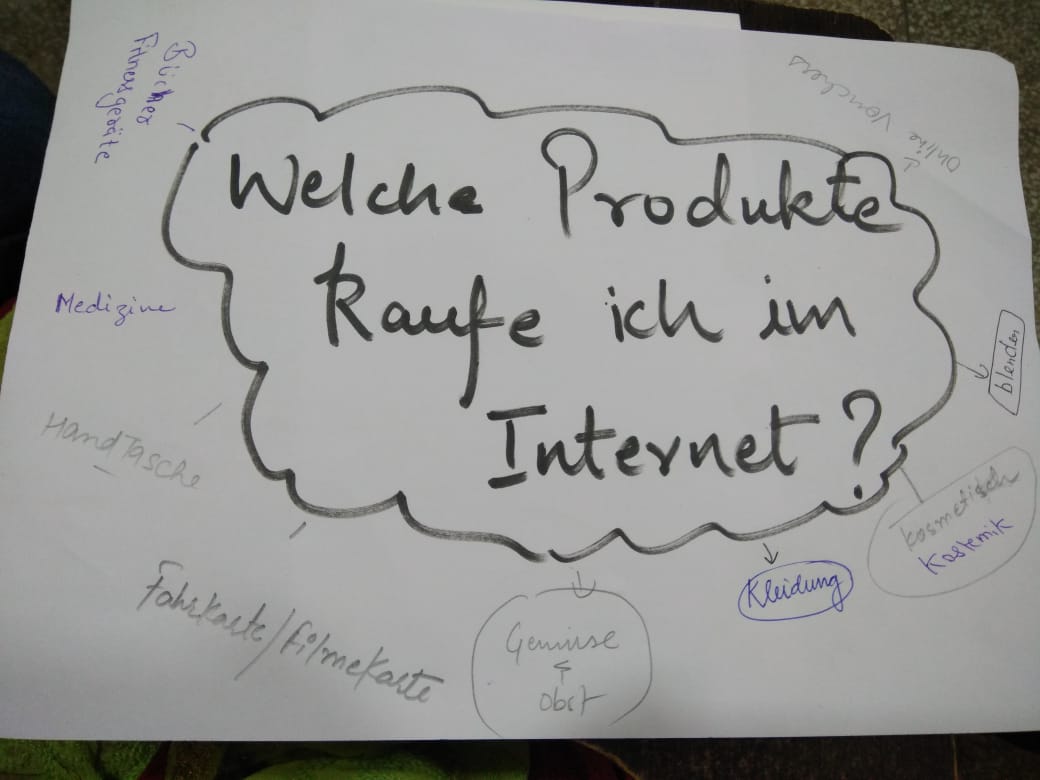 Welche Produkte
kaufe ich im
Internet?
Bücher
Fitnessgeräte
Online Vouchers
Medizine
blender
HandTasche
kosmetisch
Kostemik
Kleidung
Fahrkarte/filmekarte
Gemüse
&
obst